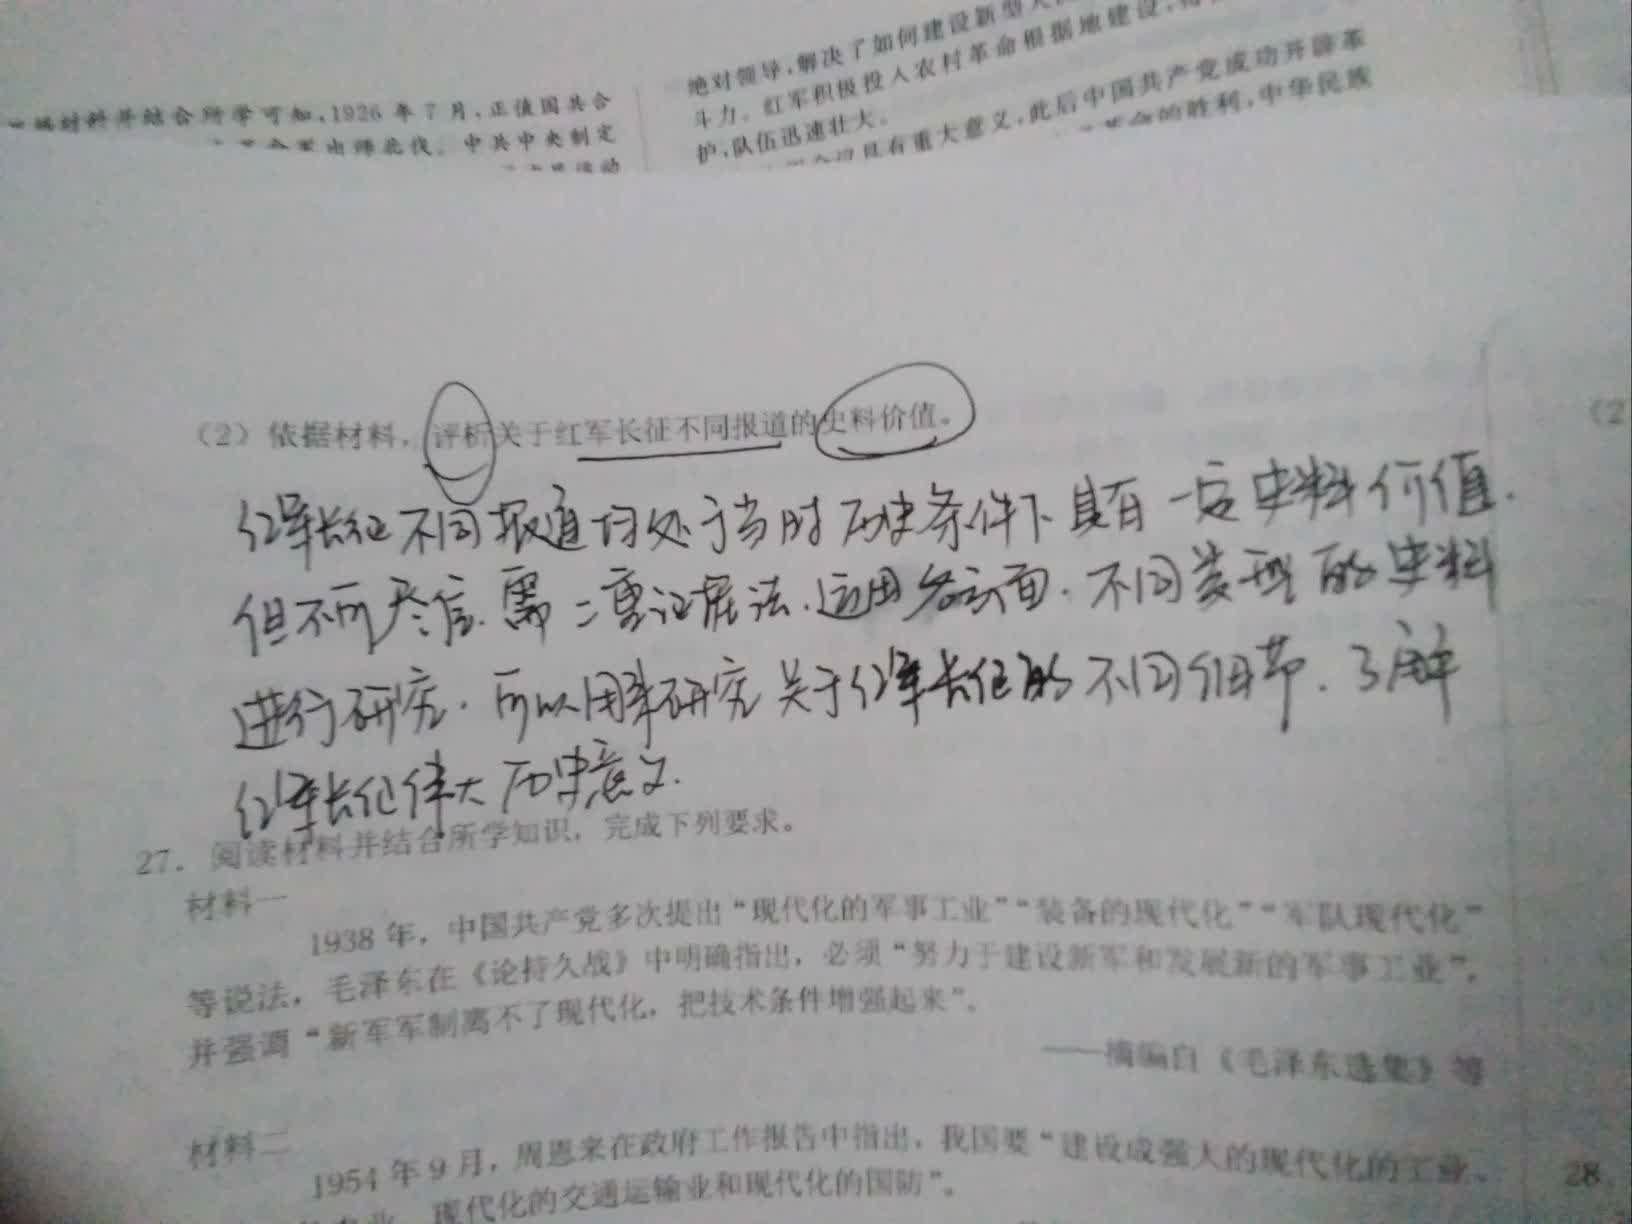 材料并结合所学可知,1926年7月,正值国共合
出师北伐。中共中央制定
绝对领导,解决了如何建设新型人
斗力。红军积极投入农村革命根据地建设,
护,队伍迅速壮大。
具有重大意义,此后中国共产党成功开辟革
的胜利,中华民族
(2)依据材料,评析关于红军长征不同报道的史料价值。
红军长征不同报道均处于当时历史条件下具有一定史料价值.
但不可尽信.需二重证据法.运用多方面.不同类型的史料
进行研究.可以用来研究关于红军长征的不同细节.了解
红军长征伟大历史意义.
27. 阅读材料并结合所学知识,完成下列要求。
材料一
1938年,中国共产党多次提出“现代化的军事工业”“装备的现代化”“军队现代化”
等说法,毛泽东在《论持久战》中明确指出,必须“努力于建设新军和发展新的军事工业”,
并强调“新军军制离不了现代化,把技术条件增强起来”。
——摘编自《毛泽东选集》等
材料二
1954年9月,周恩来在政府工作报告中指出,我国要“建设成强大的现代化的工业、
现代化的交通运输业和现代化的国防”。
(2
28.